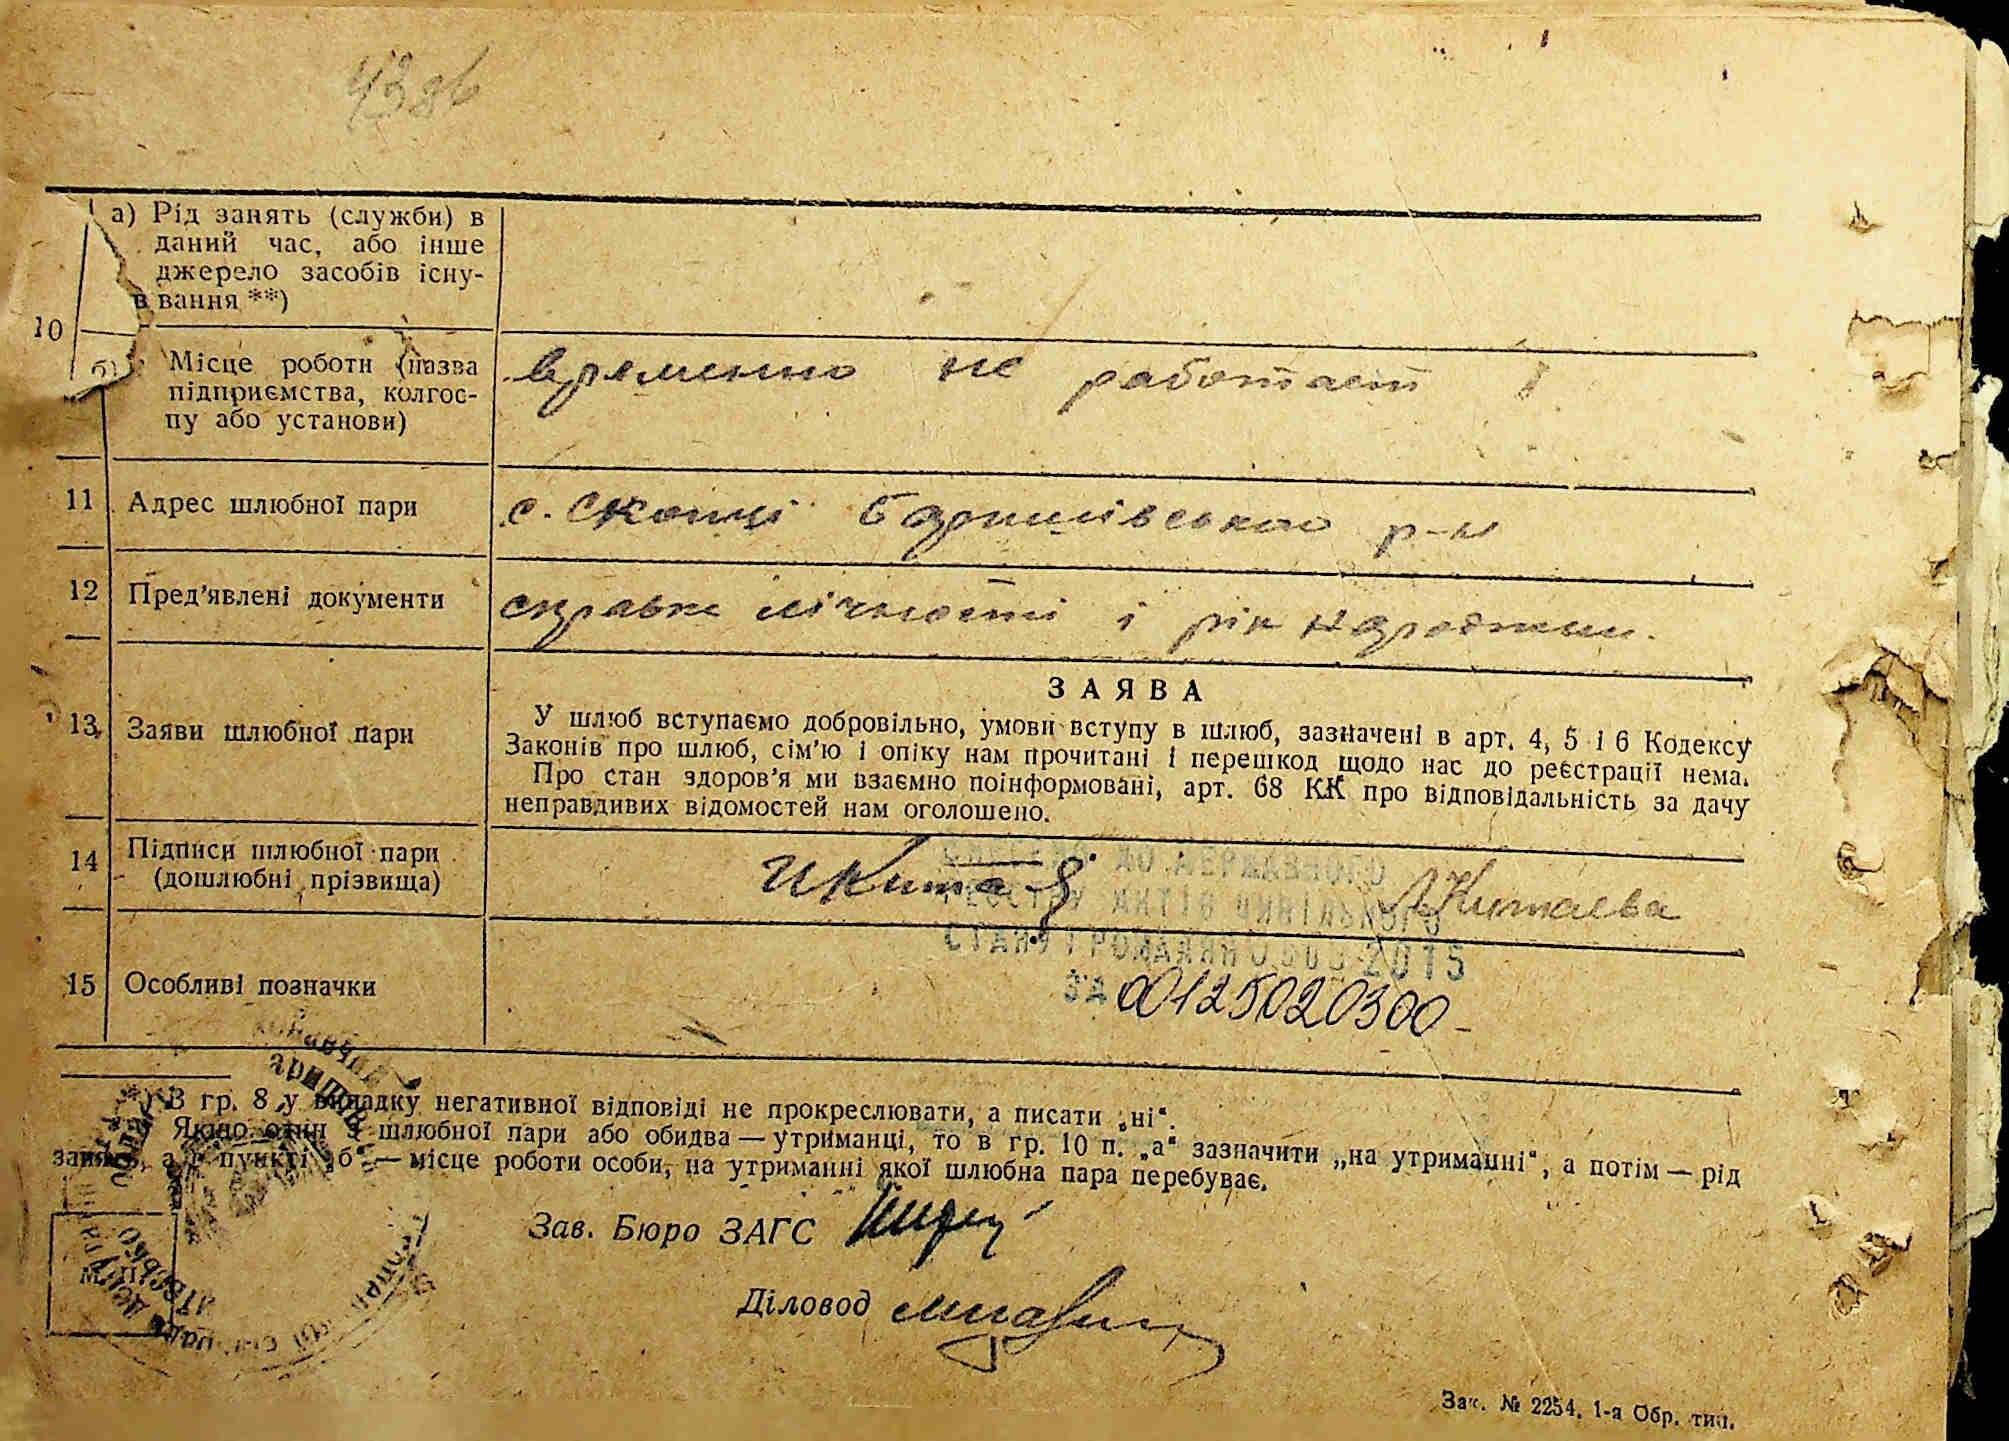 а) Рід занять (служби) в
даний час, або інше
джерело засобів існу-
вання **)
10
б) Місце роботи (назва
підприємства, колгос-
пу або установи)
временно не работает
11 Адрес шлюбної пари
с. Скопці Баришівського р-н
12 Пред'явлені документи
справка лічності і рік народжен.
ЗАЯВА
13 Заяви шлюбної пари
У шлюб вступаємо добровільно, умови вступу в шлюб, зазначені в арт. 4, 5 і 6 Кодексу
Законів про шлюб, сім'ю і опіку нам прочитані і перешкод щодо нас до реєстрації нема.
Про стан здоров'я ми взаємно поінформовані, арт. 68 КК про відповідальність за дачу
неправдивих відомостей нам оголошено.
14 Підписи шлюбної пари
(дошлюбні прізвища)
Китаева
ДО ДЕРЖАВНОГО
РЕЄСТРУ АКТІВ ЦИВІЛЬНОГО
СТАНУ ГРОМАДЯН 2015
ЗА 00125020300
15 Особливі позначки
*) В гр. 8 у випадку негативної відповіді не прокреслювати, а писати „ні“.
Якщо один з шлюбної пари або обидва — утриманці, то в гр. 10 п. „а“ зазначити „на утриманні“, а потім — рід
занять, а в пункті „б“ — місце роботи особи, на утриманні якої шлюбна пара перебуває.
Зав. Бюро ЗАГС
М. П.
Діловод
Зак. № 2254. 1-а Обр. тип.